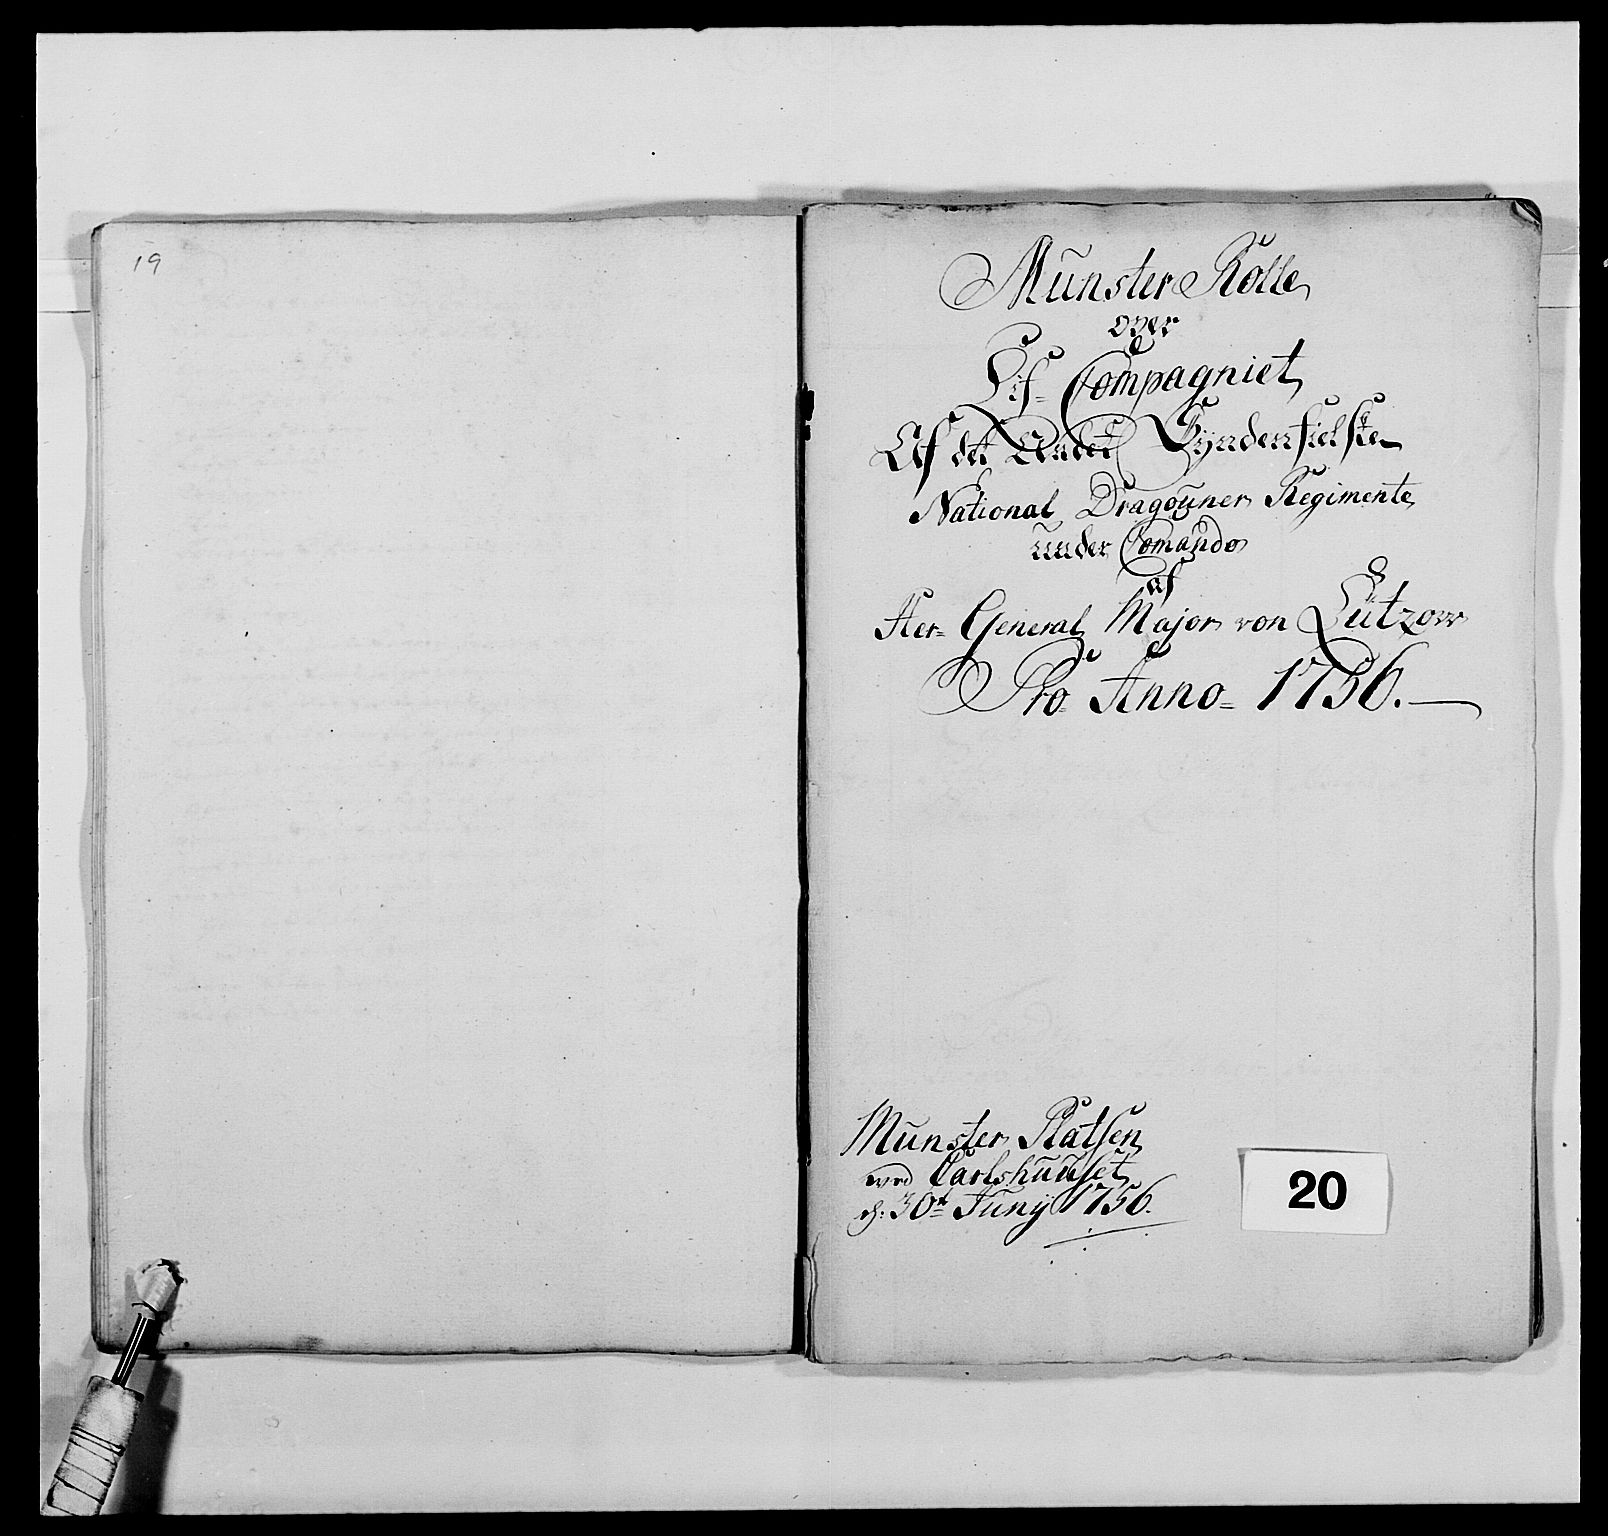 19
Munster Rolle
over
Lif-Compagniet
Af det Andet Syndenfielske
National Dragouner Regimente
under Comando
af
Her- General Major von Lützow
Pro Anno= 1756.
Munster Platsen
ved Carlshuuset
d: 30te Junÿ 1756.
20